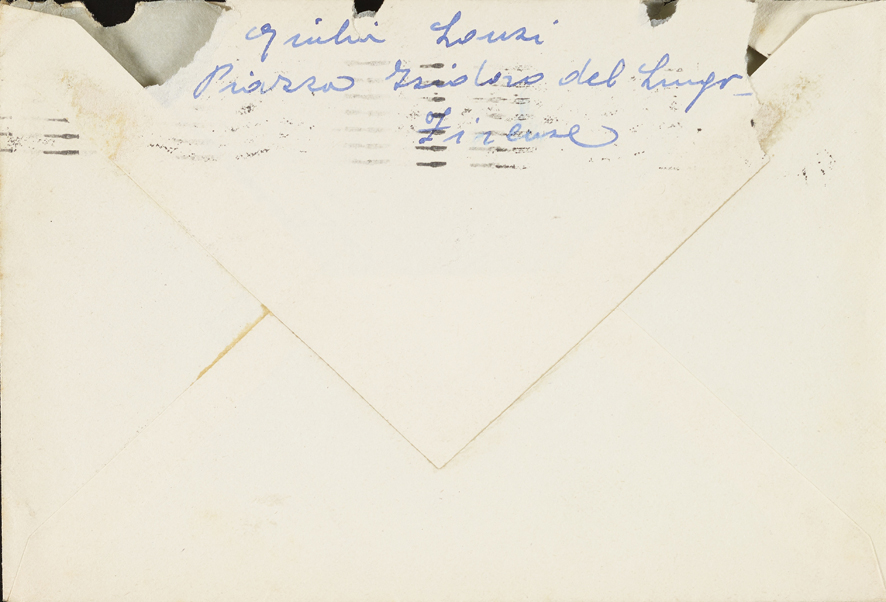 Giulia Lonzi
Piazza Isidoro del Lungo
Firenze